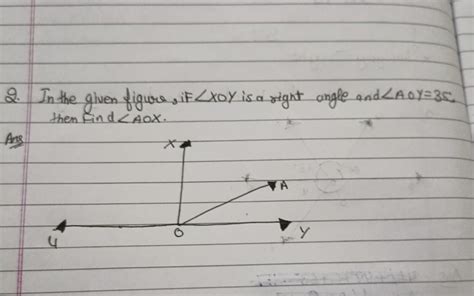 Q. In the given figure, if ∠XOY is a right angle and ∠AOY=35,
then find ∠AOX.
Ans
X
A
O
Y